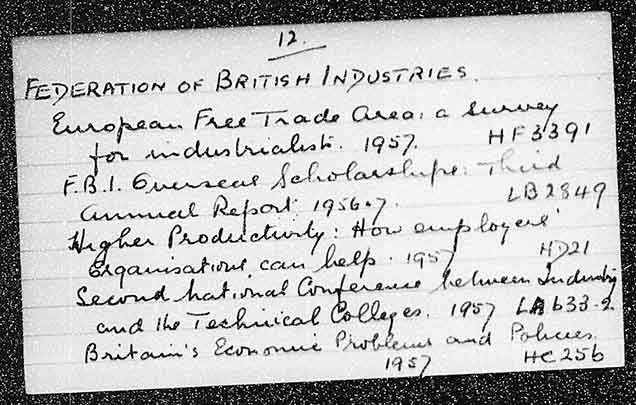 12.
FEDERATION OF BRITISH INDUSTRIES.
European Free Trade Area: a survey
for industrialists. 1957. HF3391
F.B.I. Overseas Scholarships: Third
Annual Report. 1956-7. LB2849
Higher Productivity: How employers'
organisations can help. 1957 HD21
Second National Conference between Industry
and the Technical Colleges. 1957 LAb33.2
Britain's Economic Problems and Policies.
1957 HC256